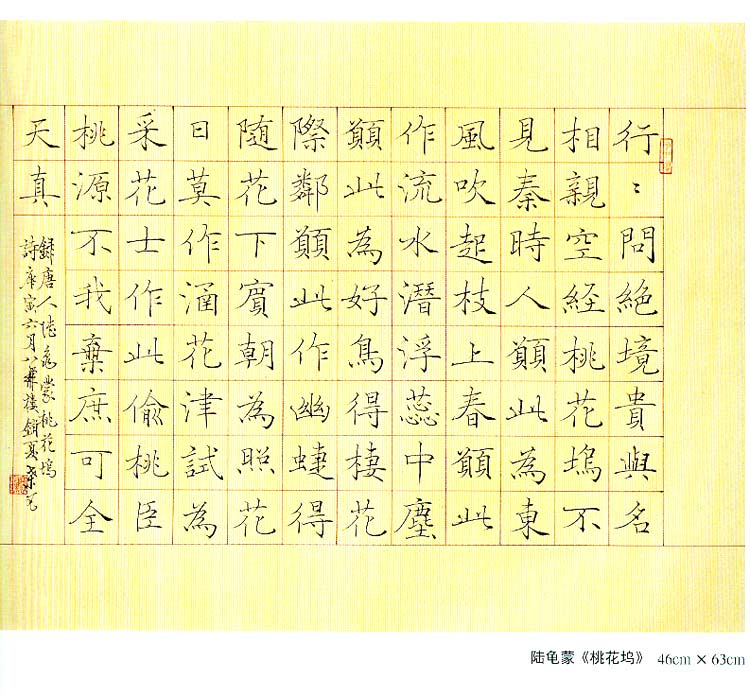 行〻問絶境貴與名
相親空経桃花塢不
見秦時人願此為東
風吹起枝上春願此
作流水潛浮蕊中塵
願此為好鳥得棲花
際鄰願此作幽蜨得
随花下賓朝為照花
日莫作涵花津試為
采花士作此偷桃臣
桃源不我棄庶可全
天真
録唐人陸龜蒙桃花塢
詩庚寅六月八
陆龟蒙《桃花坞》 46cm × 63cm